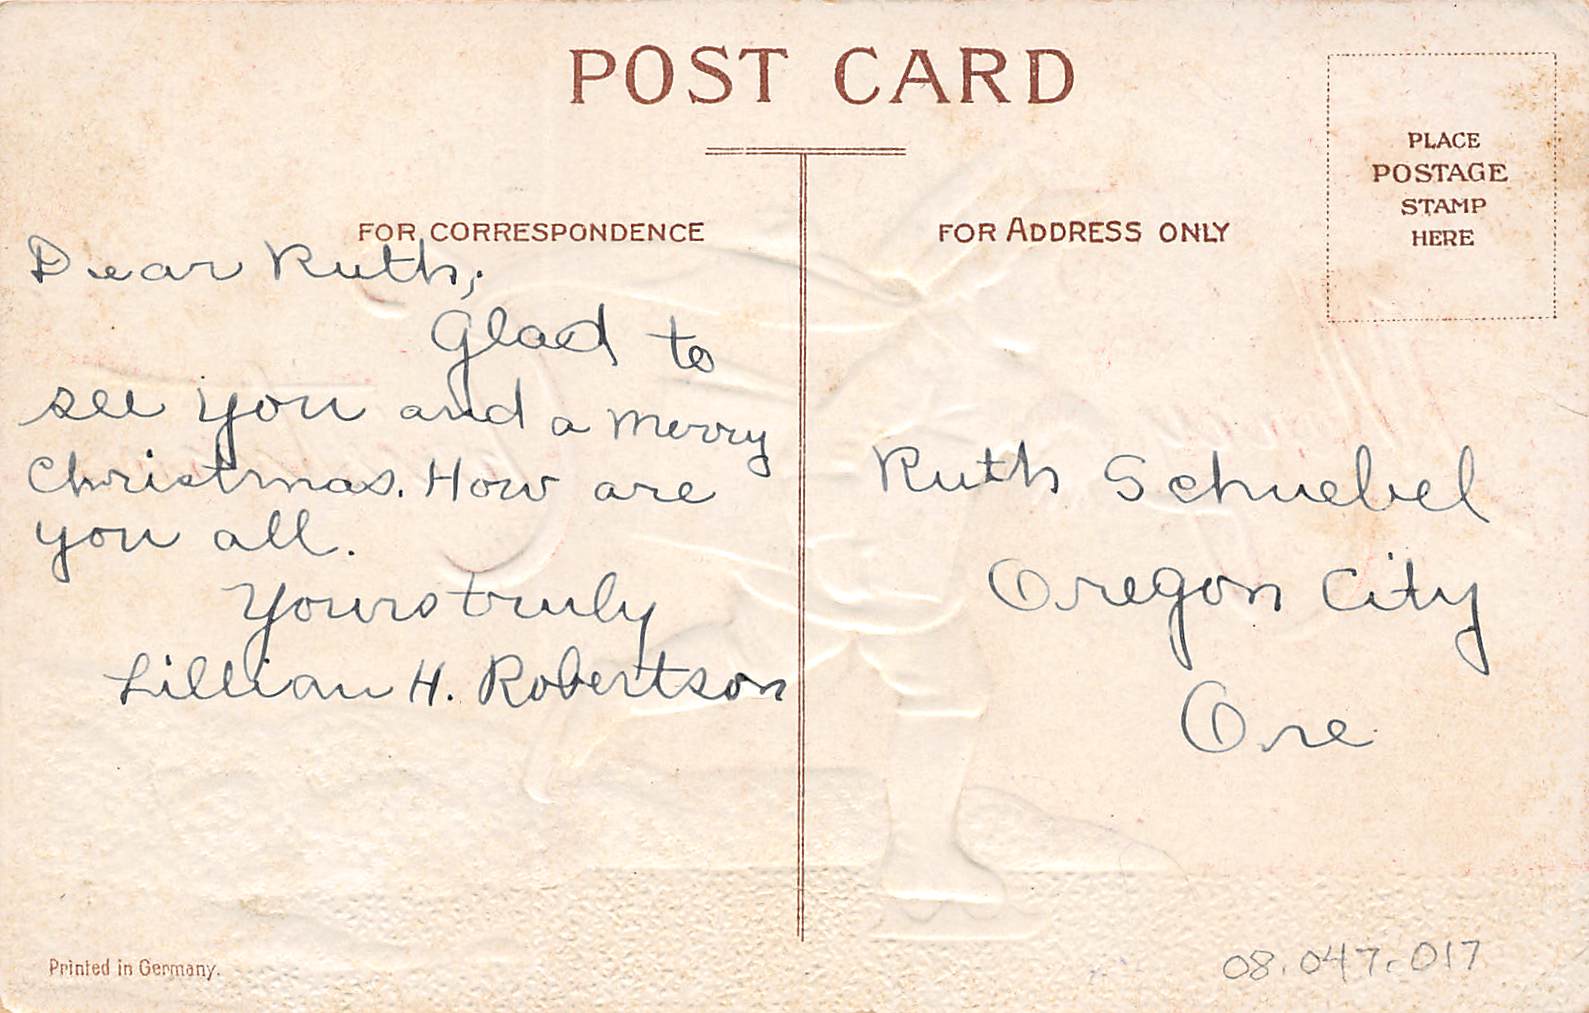 POST CARD
PLACE
POSTAGE
STAMP
HERE
FOR CORRESPONDENCE
FOR ADDRESS ONLY
Dear Ruth;
Glad to
see you and a merry
Christmas. How are
you all.
Yours truly
Lillian H. Robertson
Ruth Schuebel
Oregon City
Ore
Printed in Germany.
08.047.017